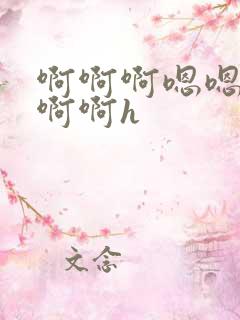 啊啊啊嗯嗯
啊啊h
文念